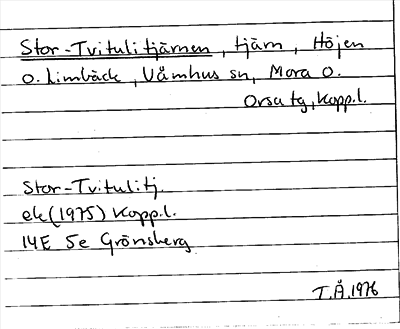 Stor-Tvitulitjärnen, tjärn, Höjen
o. Limbäck, Våmhus sn, Mora o.
Orsa tg, Kopp.l.
Stor-Tvitulitj.
ek (1975) Kopp.l.
14E 5e Grönsberg
T.Å. 1976